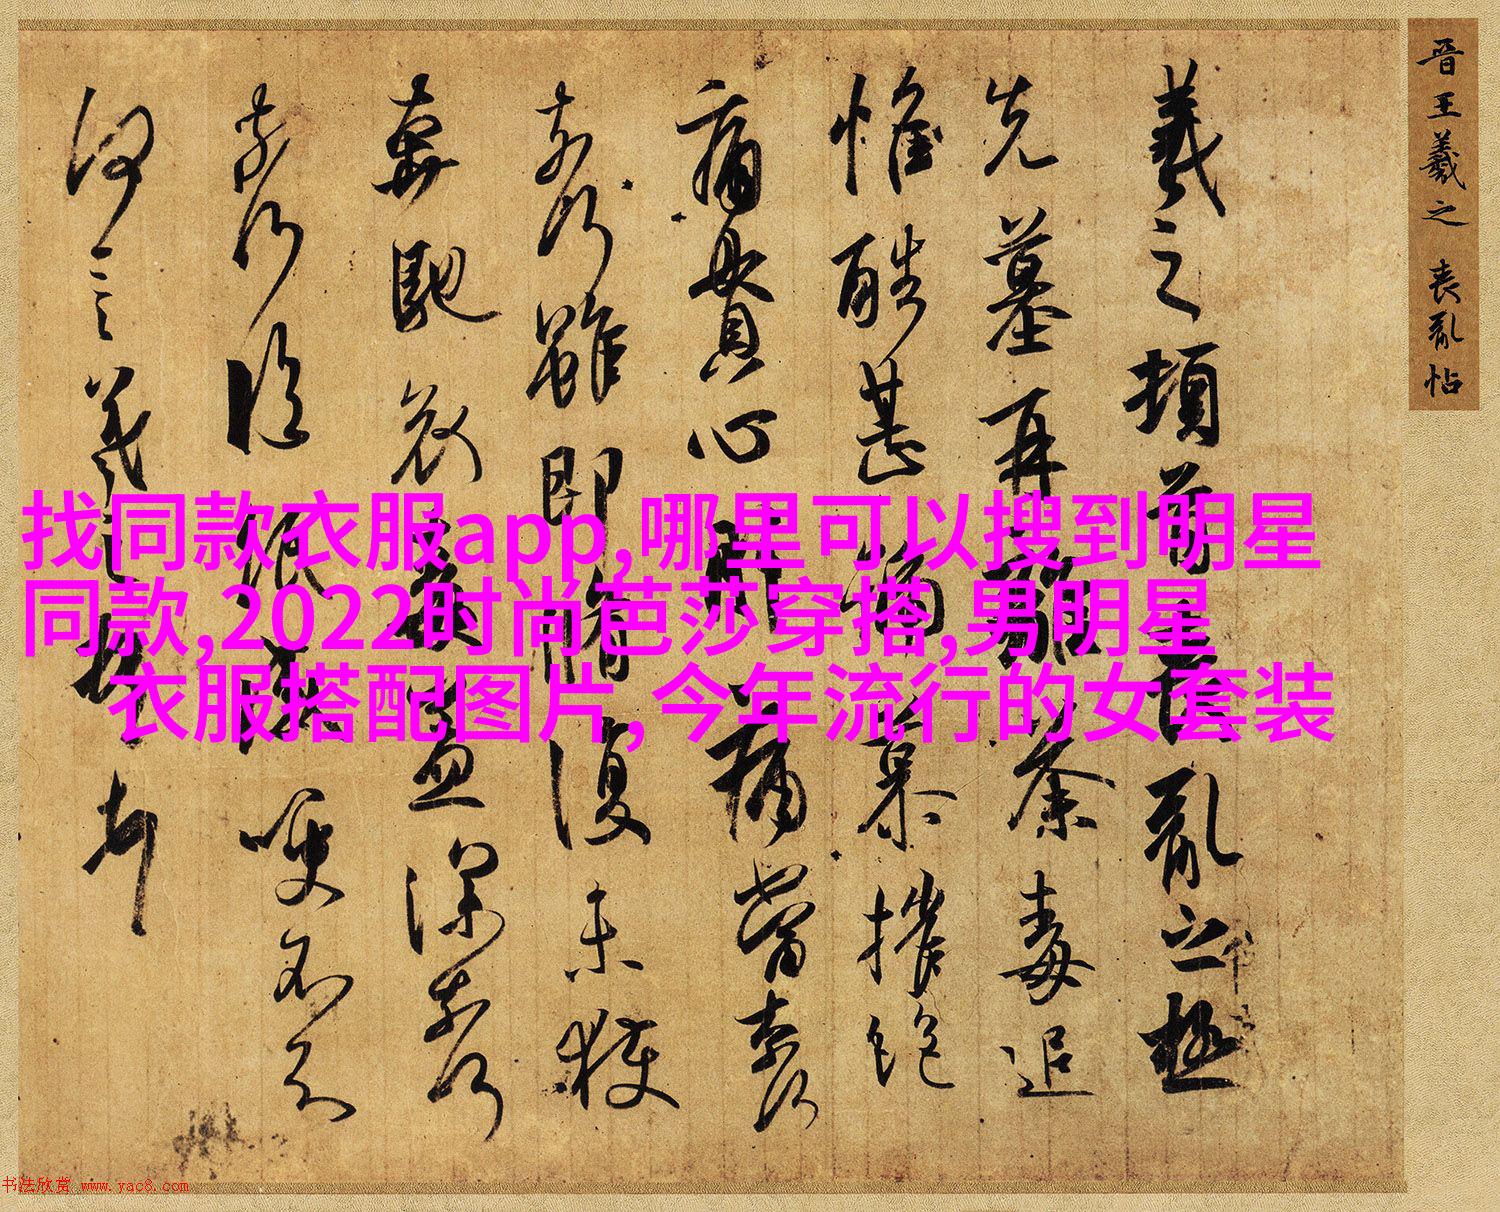 晋王羲之 喪亂帖
羲之頓首喪亂之極
先墓再離荼毒追
惟酷甚號慕摧絕
痛貫心肝痛當奈何
奈何雖即脩復未獲
奔馳哀毒益深奈何
奈何臨紙感哽不知
何言羲之頓首
找同款衣服app,哪里可以搜到明星
同款,2022时尚芭莎穿搭,男明星
衣服搭配图片,今年流行的女套装
书法欣赏 www.yac8.com